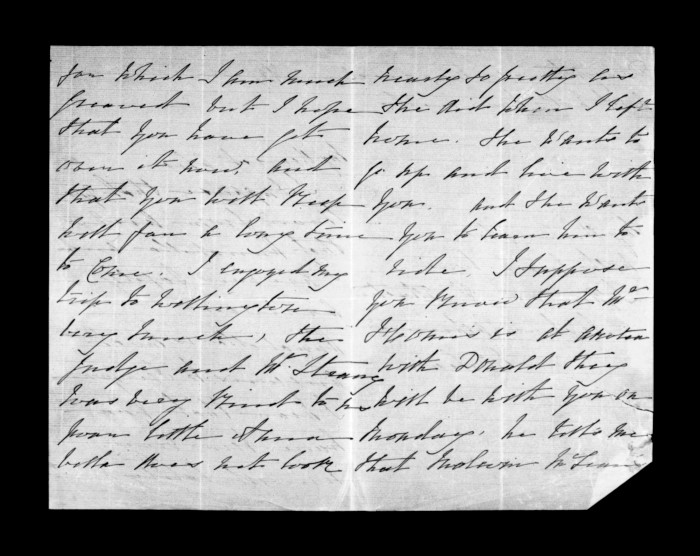 for which I am much
greaved but I hope
that you have get
over it now. and
that you will keep
well for a long time
to Come. I enjoyed my
trip to Wellington
very much, the
Judge and Mr Strang
was very kind to me
poor little Anna
bella does not look
nearly so pretty as
She did when I left
home. She wants to
go up and live with
you. and She wants
you to learn him to
ride. I Suppose
you know that Mr
is at
with Donald they
will be with you on
Monday, he tells me
that McLean